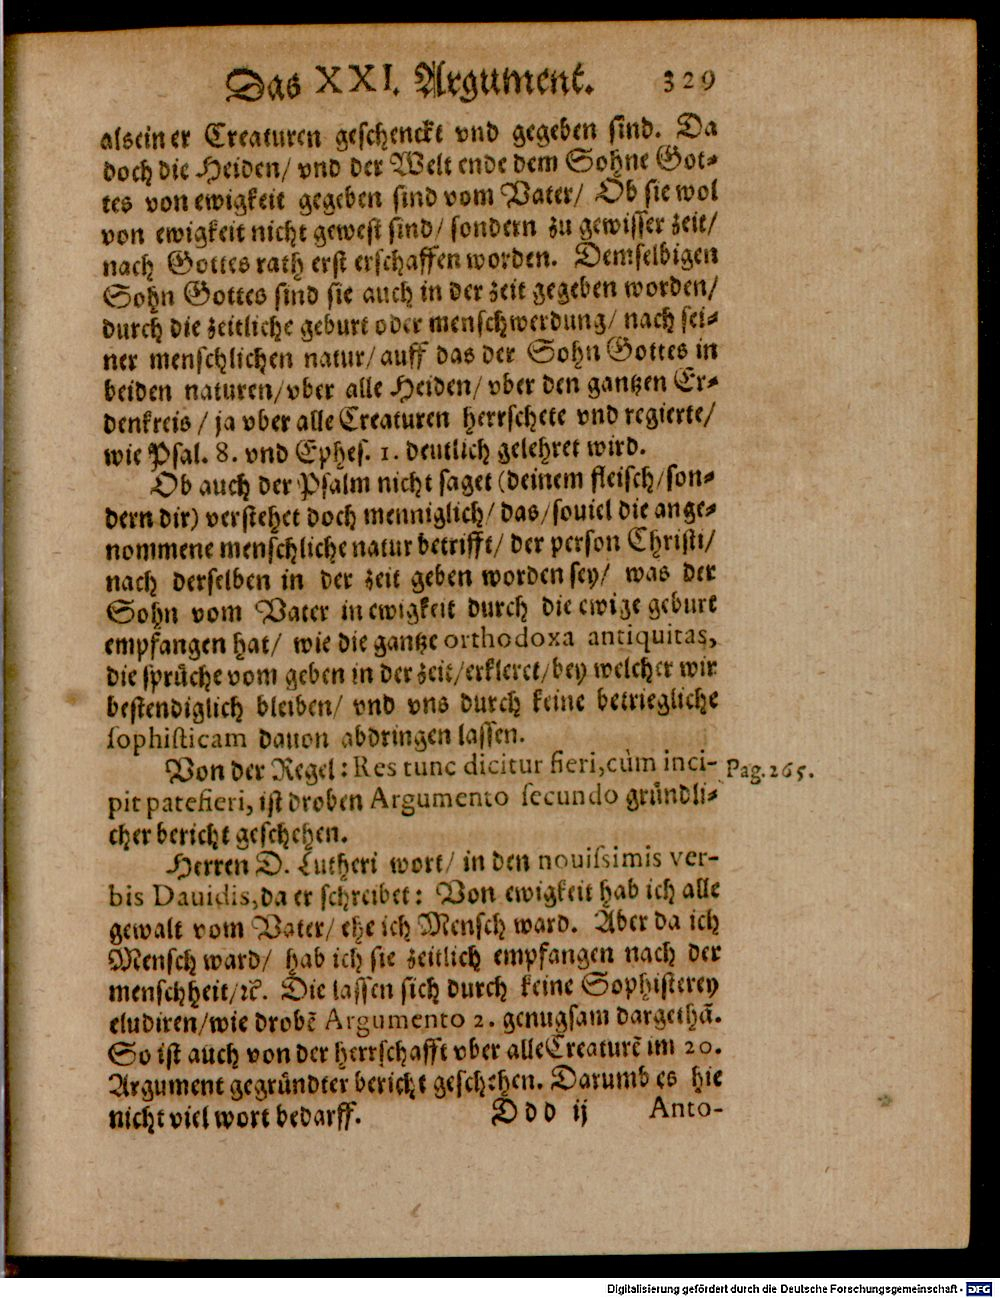 Das XXI. Argument. 329
alseiner Creaturen geschenckt vnd gegeben sind. Da
doch die Heiden/ vnd der Welt ende dem Sohne Got-
tes von ewigkeit gegeben sind vom Vater/ Ob sie wol
von ewigkeit nicht gewest sind/ sondern zu gewisser zeit/
nach Gottes rath erst erschaffen worden. Demselbigen
Sohn Gottes sind sie auch in der zeit gegeben worden/
durch die zeitliche geburt oder menschwerdung/ nach sei-
ner menschlichen natur/ auff das der Sohn Gottes in
beiden naturen/ vber alle Heiden/ vber den gantzen Er-
denkreis / ja vber alle Creaturen herrschete vnd regierte/
wie Psal. 8. vnd Ephes. 1. deutlich gelehret wird.
Ob auch der Psalm nicht saget (deinem fleisch/ son-
dern dir) verstehet doch menniglich/ das/ souiel die ange-
nommene menschliche natur betrifft/ der person Christi/
nach derselben in der zeit geben worden sey/ was der
Sohn vom Vater in ewigkeit durch die ewige geburt
empfangen hat/ wie die gantze orthodoxa antiquitas,
die sprüche vom geben in der zeit/ erkleret/ bey welcher wir
bestendiglich bleiben/ vnd vns durch keine betriegliche
sophisticam dauon abdringen lassen.
Von der Regel: Res tunc dicitur fieri, cùm inci- Pag. 265.
pit patefieri, ist droben Argumento secundo gründli-
cher bericht geschehen.
Herren D. Lutheri wort/ in den nouissimis ver-
bis Dauidis, da er schreibet: Von ewigkeit hab ich alle
gewalt vom Vater/ ehe ich Mensch ward. Aber da ich
Mensch ward/ hab ich sie zeitlich empfangen nach der
menschheit/ ꝛc. Die lassen sich durch keine Sophisterey
eludiren/ wie drobē Argumento 2. genugsam dargethā.
So ist auch von der herrschafft vber alle Creaturē im 20.
Argument gegründter bericht geschehen. Darumb es hie
nicht viel wort bedarff. Ddd ij Anto-
Digitalisierung gefördert durch die Deutsche Forschungsgemeinschaft - DFG